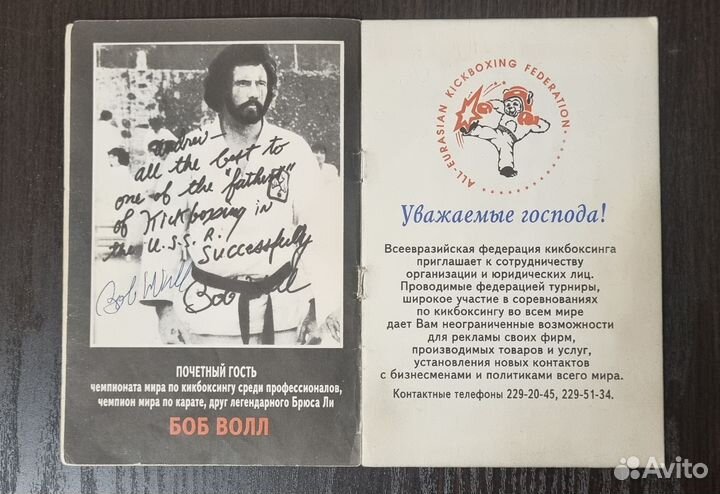 Andrei —
all the best to
one of the "fathers"
of Kickboxing in
the U.S.S.R.
Successfully
Bob Wall
Bob Wall
ПОЧЕТНЫЙ ГОСТЬ
чемпионата мира по кикбоксингу среди профессионалов,
чемпион мира по карате, друг легендарного Брюса Ли
БОБ ВОЛЛ
ALL-EURASIAN KICKBOXING FEDERATION
Уважаемые господа!
Всеевразийская федерация кикбоксинга
приглашает к сотрудничеству
организации и юридических лиц.
Проводимые федерацией турниры,
широкое участие в соревнованиях
по кикбоксингу во всем мире
дает Вам неограниченные возможности
для рекламы своих фирм,
производимых товаров и услуг,
установления новых контактов
с бизнесменами и политиками всего мира.
Контактные телефоны 229-20-45, 229-51-34.
Avito